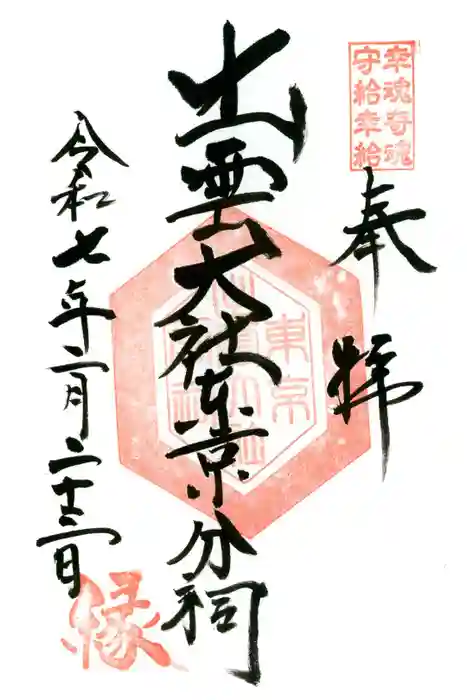 幸魂奇魂
守給幸給
奉拝
出雲大社東京分祠
東京
令和七年二月二十二日
縁